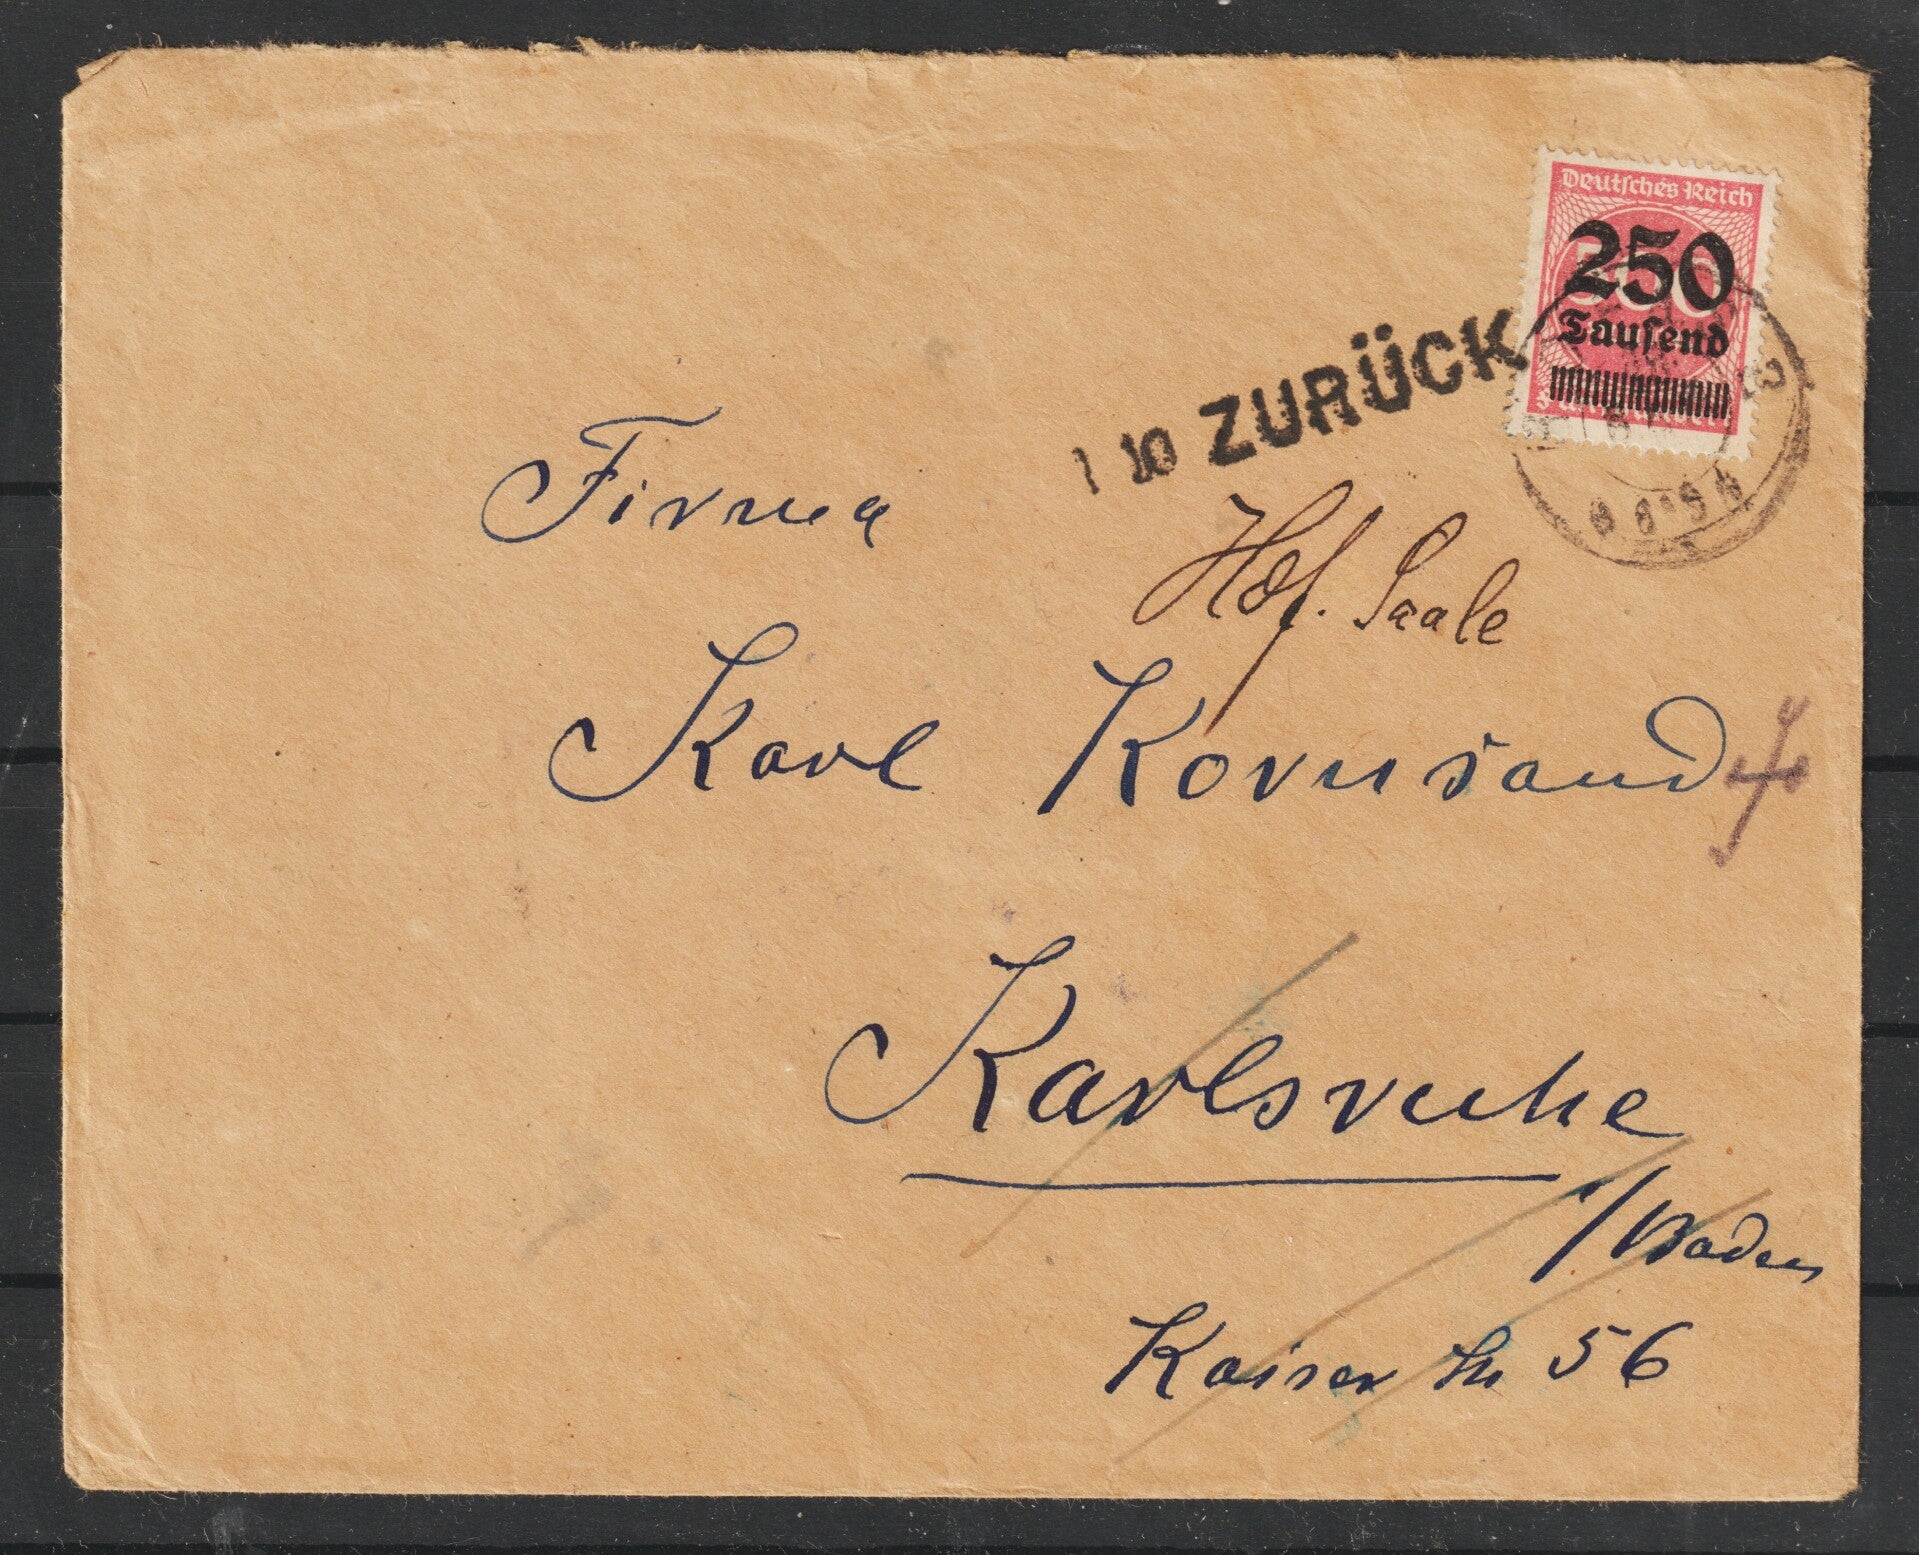 Deutsches Reich
250
Tausend
ZURÜCK
Firma
Hof. Saale
Karl Kornsand
Karlsruhe
i/Baden
Kaiser str 56